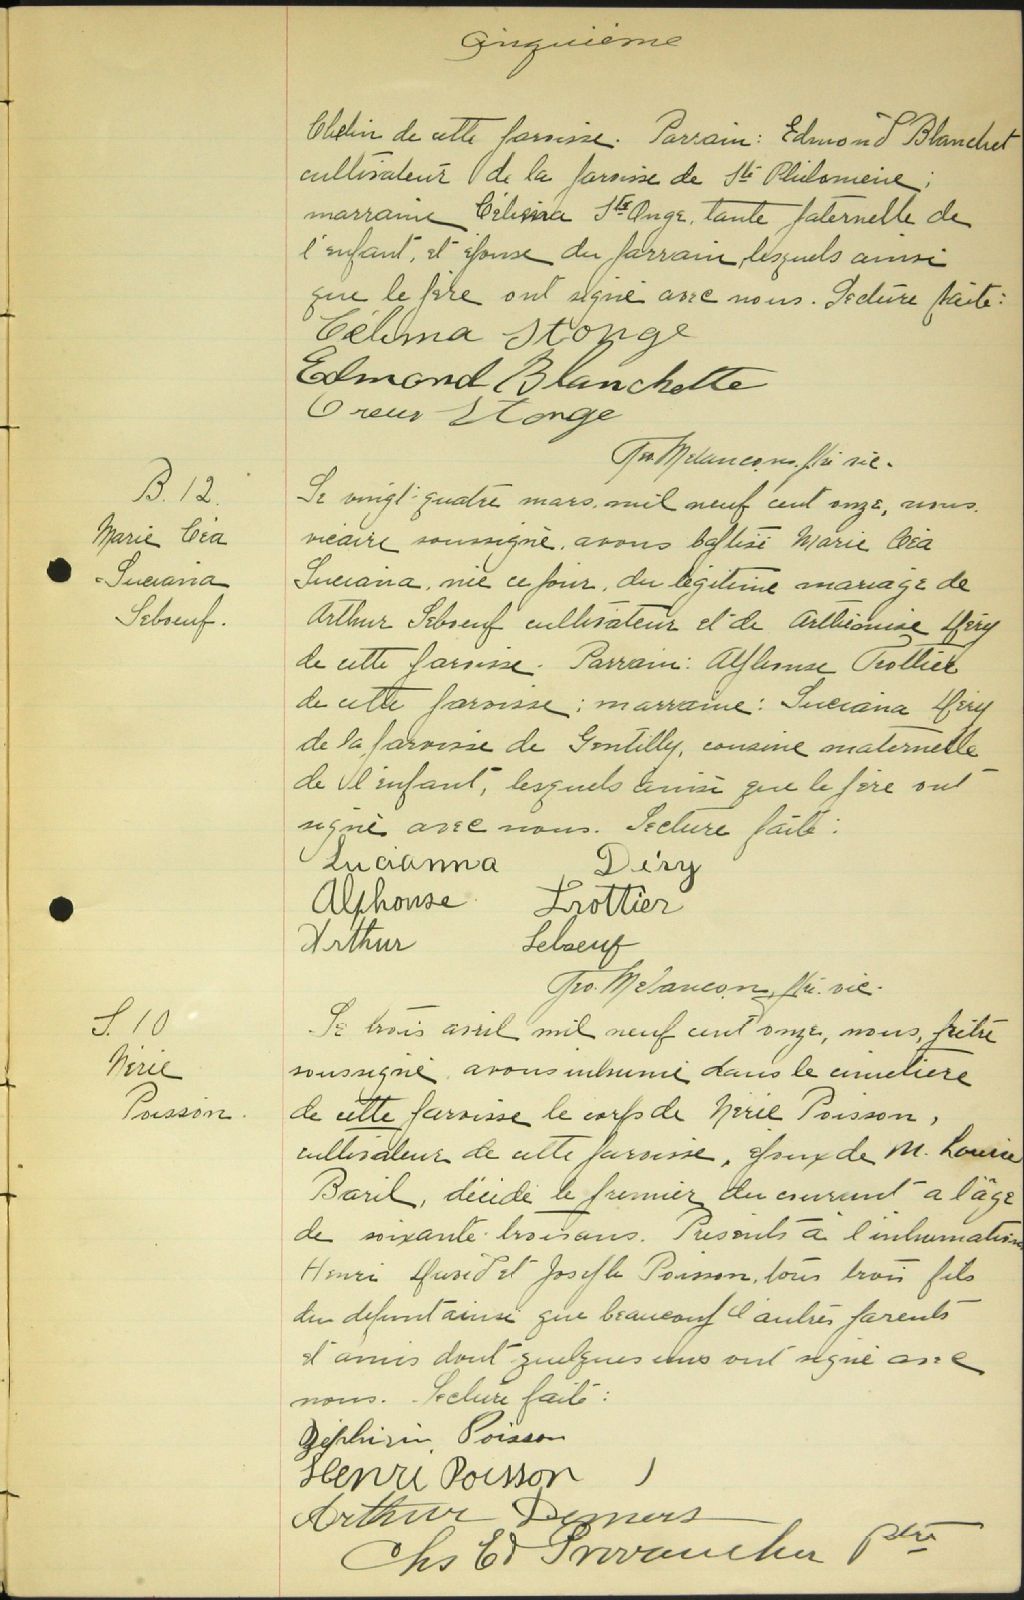 Cinquième
de cette paroisse. Parrain: Edmond Blanchet
cultivateur de la paroisse de Ste Philomène;
marraine Célima St Onge, tante paternelle de
l'enfant, et épouse du parrain, lesquels ainsi
que le père ont signé avec nous. Lecture faite:
Célima Stonge
Edmond Blanchette
Stonge
Geo. Melançon, ptre vic.
B. 12.
Marie Céa
Luciana
Leboeuf.
Le vingt-quatre mars, mil neuf cent onze, nous,
vicaire soussigné, avons baptisé Marie Céa
Luciana, née ce jour, du légitime mariage de
Arthur Leboeuf cultivateur et de Arthémise Déry
de cette paroisse. Parrain: Alphonse Trottier
de cette paroisse; marraine: Luciana Déry
de la paroisse de Gentilly, cousine maternelle
de l'enfant, lesquels ainsi que le père ont
signé avec nous. Lecture faite:
Lucianna Déry
Alphonse Trottier
Arthur Leboeuf
Geo. Melançon, ptre. vic.
S. 10
Nérie
Poisson.
Le trois avril mil neuf cent onze, nous, prêtre
soussigné avons inhumé dans le cimetière
de cette paroisse le corps de Nérie Poisson,
cultivateur de cette paroisse, époux de M. Louise
Baril, décédé le premier du courant a l'âge
de soixante-trois ans. Présents à l'inhumation
Henri David et Joseph Poisson, tous trois fils
du défunt ainsi que beaucoup d'autres parents
et amis dont quelques uns ont signé avec
nous. Lecture faite:
Zéphirin Poisson
Henri Poisson
Arthur Demers
Chs Ed Provancher ptre